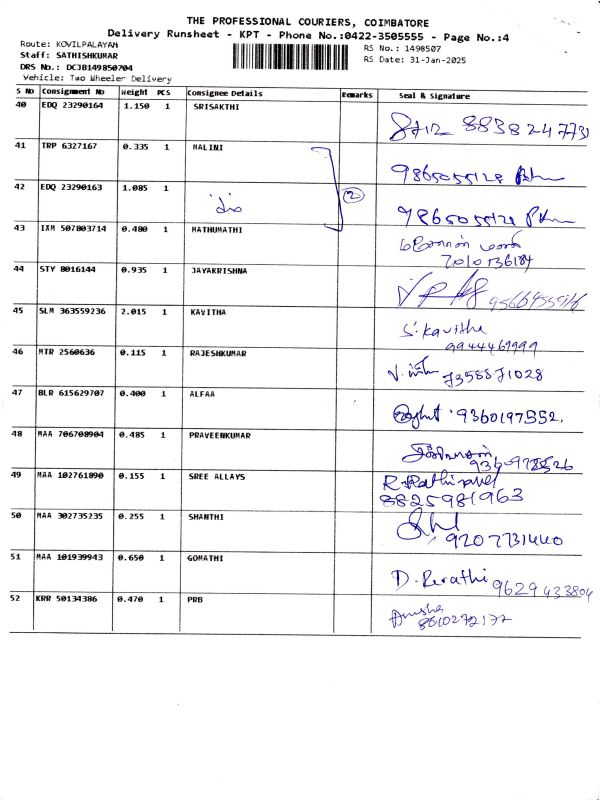 THE PROFESSIONAL COURIERS, COIMBATORE
Delivery Runsheet - KPT - Phone No.:0422-3505555 - Page No.:4
Route: KOVILPALAYAM
RS No.: 1498507
Staff: SATHISHKUMAR
RS Date: 31-Jan-2025
DRS No.: DCJB149850704
Vehicle: Two Wheeler Delivery
S No Consignment No Weight PCS Consignee Details Remarks Seal & Signature
40 EDQ 23290164 1.150 1 SRISAKTHI
8838247731
41 TRP 6327167 0.335 1 MALINI
9865055128
42 EDQ 23290163 1.085 1
2
9865055128
43 IXM 507803714 0.480 1 MATHUMATHI
7010736184
44 STY 8016144 0.935 1 JAYAKRISHNA
45 SLM 363559236 2.015 1 KAVITHA
S. Kavitha
9944469999
46 MTR 2560636 0.115 1 RAJESHKUMAR
7358871028
47 BLR 615629707 0.400 1 ALFAA
9360197552.
48 MAA 706708904 0.485 1 PRAVEENKUMAR
49 MAA 102761890 0.155 1 SREE ALLAYS
8825981963
50 MAA 302735235 0.255 1 SHANTHI
9207731440
51 MAA 101939943 0.650 1 GOMATHI
D. Revathi 9629433804
52 KRR 50134386 0.470 1 PRB
Anusha
8610272177